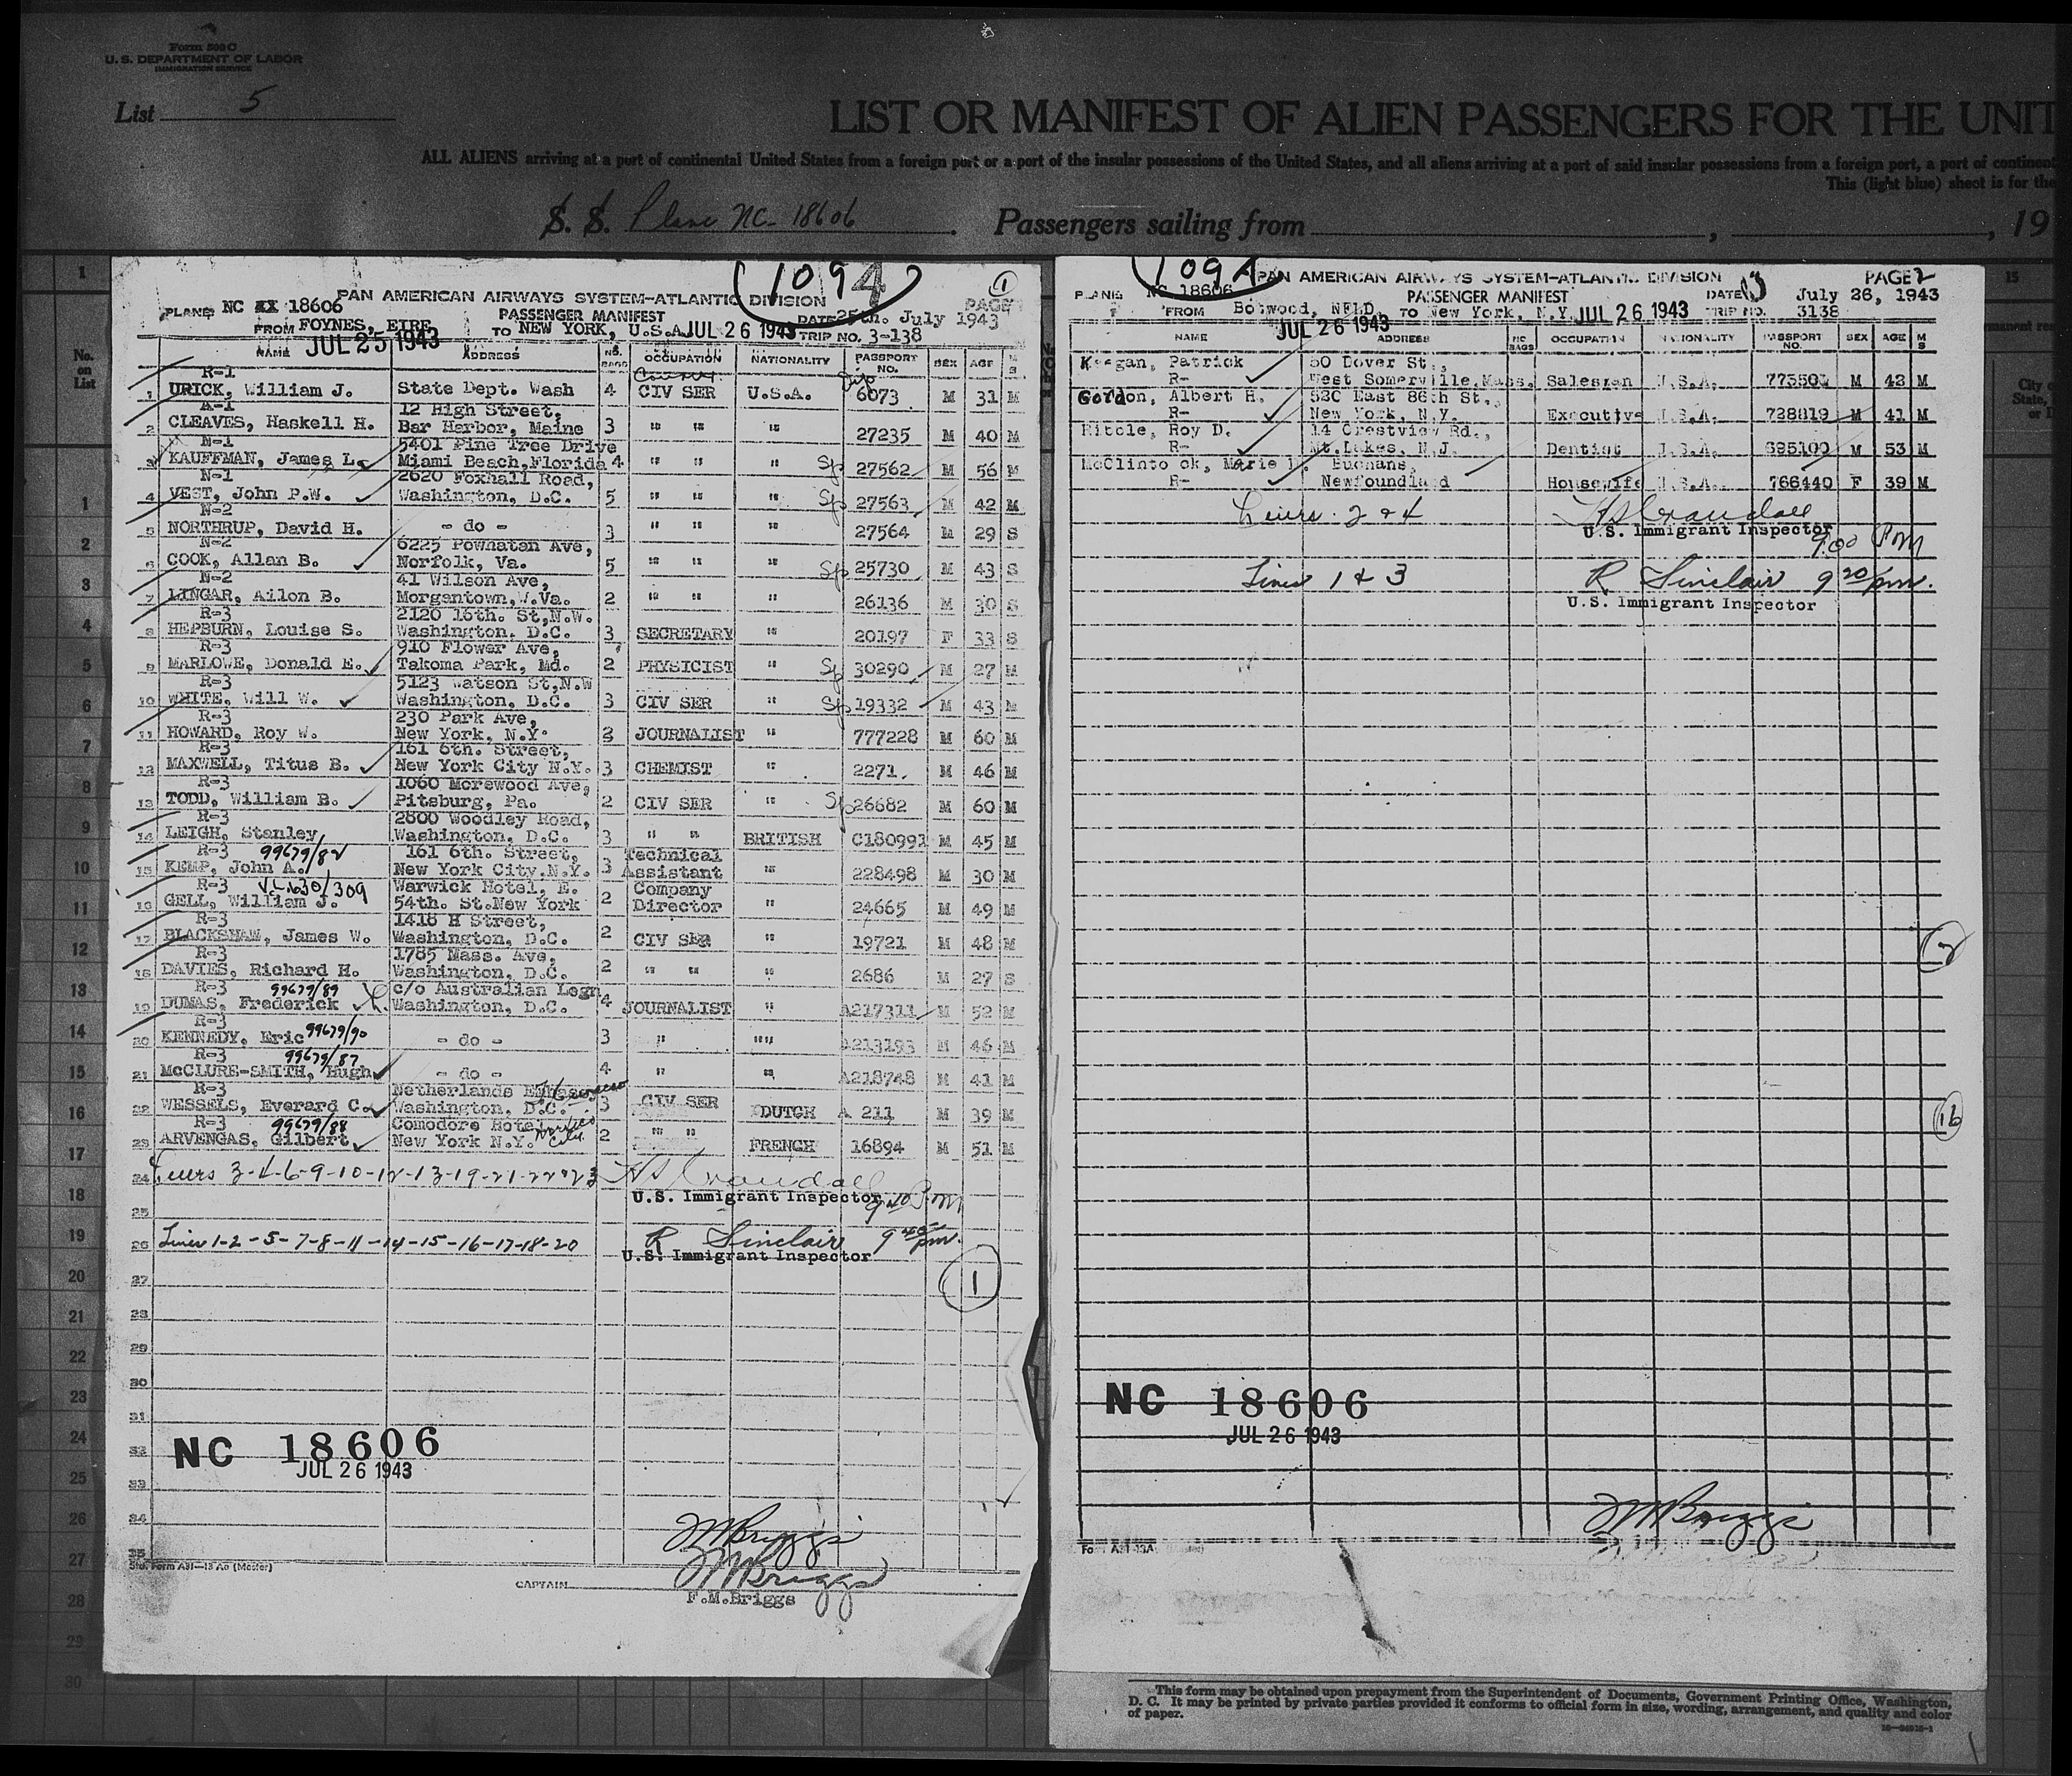 Form 500 C
U. S. DEPARTMENT OF LABOR
IMMIGRATION SERVICE
List 5
LIST OR MANIFEST OF ALIEN PASSENGERS FOR THE UNIT
ALL ALIENS arriving at a port of continental United States from a foreign port or a port of the insular possessions of the United States, and all aliens arriving at a port of said insular possessions from a foreign port, a port of continent
This (light blue) sheet is for the
S. S. Plane NC- 18606 . Passengers sailing from , , 19
1094
1
PAN AMERICAN AIRWAYS SYSTEM-ATLANTIC DIVISION PAGE
PLANE NC XX 18606 PASSENGER MANIFEST DATE 25th. July 1943
FROM FOYNES, EIRE TO NEW YORK, U.S.A. JUL 26 1943 TRIP NO. 3-138
JUL 25 1943
NAME ADDRESS NO. BAGS OCCUPATION NATIONALITY PASSPORT NO. SEX AGE M S
R-1 Dip
1 URICK, William J. State Dept. Wash 4 CIV SER U.S.A. 6073 M 31 M
A-1 12 High Street,
2 CLEAVES, Haskell H. Bar Harbor, Maine 3 " " " 27235 M 40 M
N-1 5401 Pine Tree Drive
3 KAUFFMAN, James L. Miami Beach,Florida 4 " " " Sp 27562 M 56 M
N-1 2620 Foxhall Road,
4 VEST, John P.W. Washington, D.C. 5 " " " Sp 27563 M 42 M
N-2
5 NORTHRUP, David H. - do - 3 " " " 27564 M 29 S
N-2 6225 Powhatan Ave,
6 COOK, Allan B. Norfolk, Va. 5 " " " Sp 25730 M 43 S
N-2 41 Wilson Ave,
7 LINGAR, Ailon B. Morgantown,W.Va. 2 " " " 26136 M 30 S
R-3 2120 16th. St,N.W.
8 HEPBURN, Louise S. Washington, D.C. 3 SECRETARY " 20197 F 33 S
R-3 910 Flower Ave,
9 MARLOWE, Donald E. Takoma Park, Md. 2 PHYSICIST " Sp 30290 M 27 M
R-3 5123 Watson St,N.W
10 WHITE, Will W. Washington, D.C. 3 CIV SER " Sp 19332 M 43 M
R-3 230 Park Ave,
11 HOWARD, Roy W. New York, N.Y. 3 JOURNALIST " 777228 M 60 M
R-3 161 6th. Street,
12 MAXWELL, Titus B. New York City N.Y. 3 CHEMIST " 2271. M 46 M
R-3 1060 Morewood Ave,
13 TODD, William B. Pitsburg, Pa. 2 CIV SER " Sp 26682 M 60 M
R-3 2800 Woodley Road,
14 LEIGH, Stanley Washington, D.C. 3 " " BRITISH C180991 M 45 M
R-3 99679/82 161 6th. Street, Technical
15 KEMP, John A. New York City.N.Y. 3 Assistant " 228498 M 30 M
R-3 Warwick Hotel, E. Company
16 GELL, William J. 54th. St.New York 2 Director " 24665 M 49 M
R-3 1418 H Street,
17 BLACKSHAW, James W. Washington, D.C. 2 CIV SER " 19721 M 48 M
R-3 1785 Mass. Ave,
18 DAVIES, Richard H. Washington, D.C. 2 " " " 2686 M 27 S
R-3 99679/89 c/o Australian Legn
19 DUMAS, Frederick Washington, D.C. 4 JOURNALIST " A217311 M 52 M
R-3
20 KENNEDY, Eric 99679/90 - do - 3 " "" A213193 M 46 M
R-3 99679/87
21 McCLURE-SMITH, Hugh - do - 4 " " A218748 M 41 M
R-3 Netherlands
22 WESSELS, Everard C. Washington, D.C. 3 CIV SER DUTCH A 211 M 39 M
R-3 99679/88 Comodore Hotel
23 ARVENGAS, Gilbert New York N.Y. 2 " " FRENCH 16894 M 51 M
24 Lines 3-4-6-9-10-12-13-19-21-22 & 23 H S Crandall
U.S. Immigrant Inspector 9 40 P.M
25
26 Lines 1-2-5-7-8-11-14-15-16-17-18-20 R Sinclair 9 40 pm.
U.S. Immigrant Inspector
1
27
28
29
30
31
32
33
34
35
NC 18606
JUL 26 1943
F M Briggs
F M Briggs
Std. Form A31-13 Ao (Master)
CAPTAIN
F.M.Briggs
109A PAN AMERICAN AIRWAYS SYSTEM-ATLANTIC DIVISION PAGE 2
PLANE NC 18606 PASSENGER MANIFEST DATE July 26, 1943
FROM Botwood, NFLD. TO New York, N.Y. JUL 26 1943 TRIP NO. 3138
JUL 26 1943
NAME ADDRESS NO BAGS OCCUPATION NATIONALITY PASSPORT NO. SEX AGE M S
Keegan, Patrick 50 Dover St.,
R- West Somerville,Mass. Salesman U.S.A. 773501 M 42 M
Gordon, Albert H. 520 East 86th St.,
R- New York, N.Y. Executive U.S.A. 728819 M 41 M
Roy D. 14 Crestview Rd.,
R- Mt.Lakes, N.J. Dentist U.S.A. 695100 M 53 M
McClintock, Marie Buchans,
R- Newfoundland Housewife U.S.A. 766440 F 39 M
Lines 2 & 4 H S Crandall
U.S. Immigrant Inspector
9.00 P.M
Lines 1 & 3 R Sinclair 9 20 pm.
U.S. Immigrant Inspector
2
16
NC 18606
JUL 26 1943
F M Briggs
No. on List
1
2
3
4
5
6
7
8
9
10
11
12
13
14
15
16
17
18
19
20
21
22
23
24
25
26
27
28
29
30
15
This form may be obtained upon prepayment from the Superintendent of Documents, Government Printing Office, Washington,
D. C. It may be printed by private parties provided it conforms to official form in size, wording, arrangement, and quality and color
of paper.